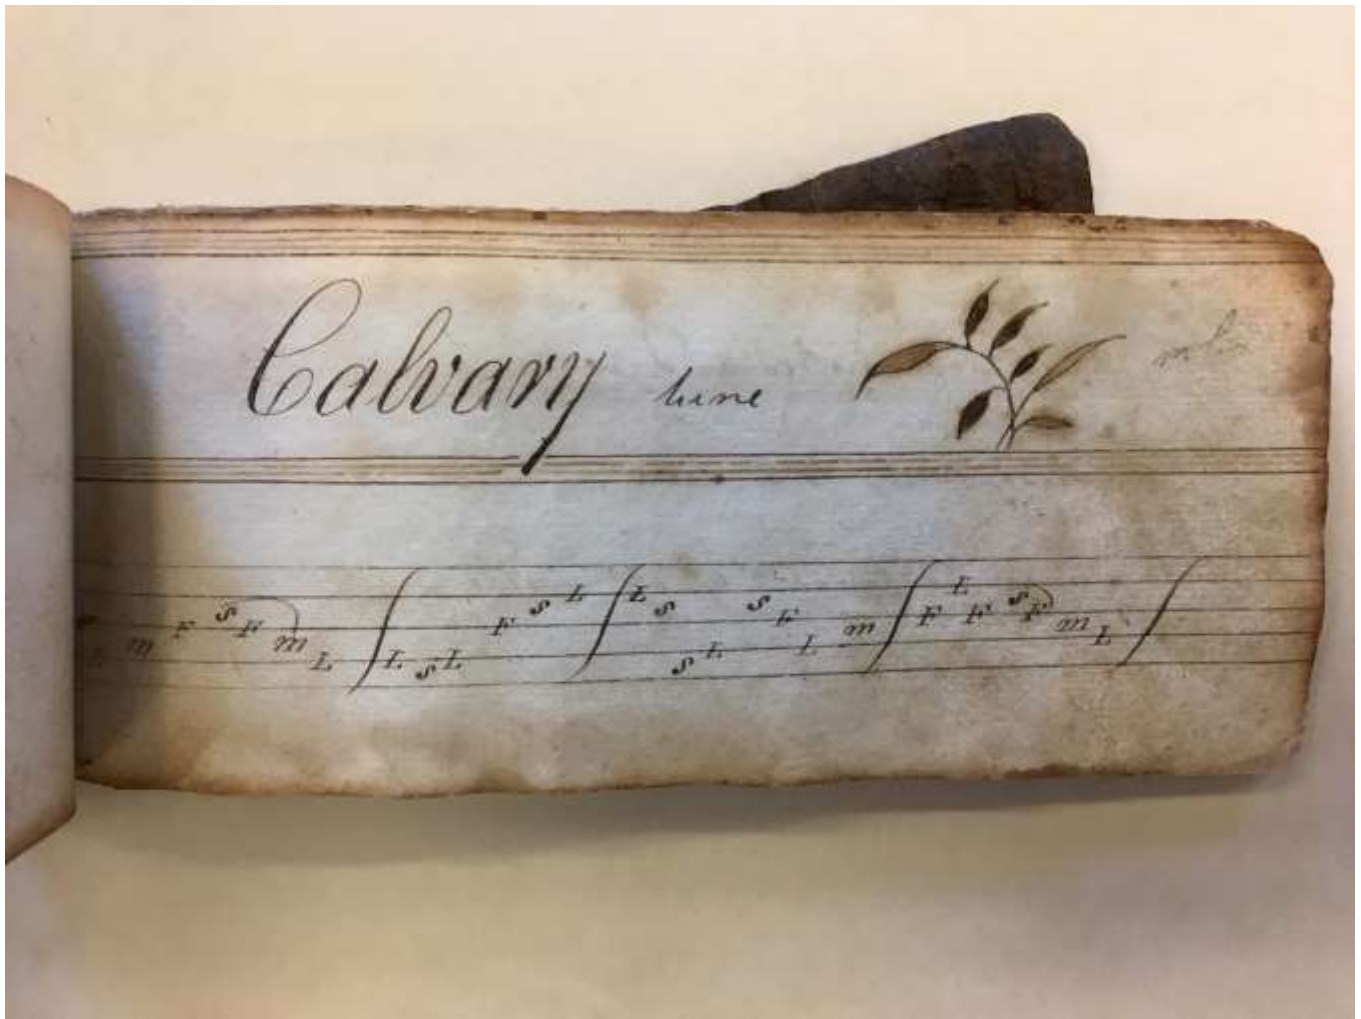 Calvary tune
m F S F m L L S L F S L L S S L S F L m F L F S F m L